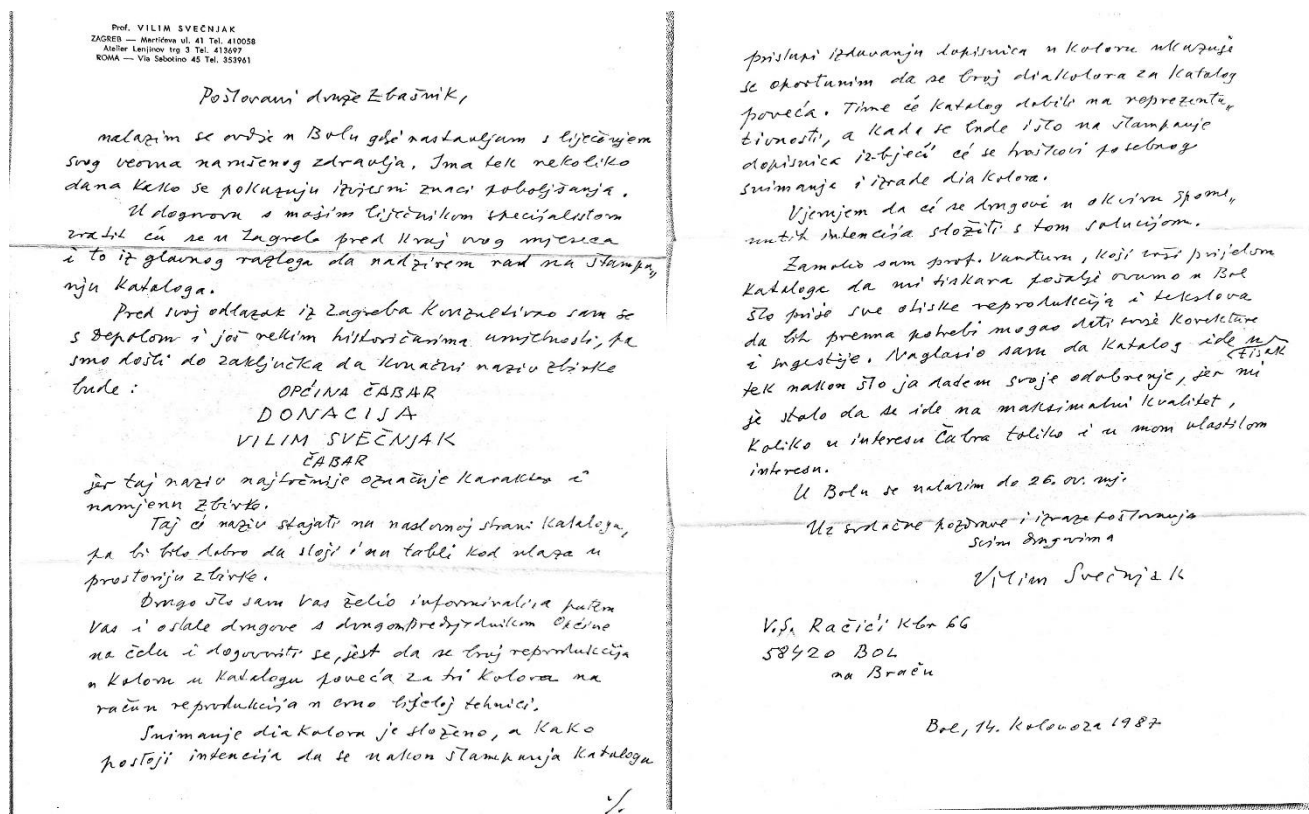 Prof. VILIM SVEČNJAK
ZAGREB — Martićeva ul. 41 Tel. 410058
Atelier Lenjinov trg 3 Tel. 413697
ROMA — Via Sabotino 45 Tel. 353961
Poštovani druže Zbašnik,
nalazim se ovdje u Bolu gdje nastavljam s liječenjem
svog veoma narušenog zdravlja. Ima tek nekoliko
dana kako se pokazuju izvjesni znaci poboljšanja.
U dogovoru s mojim liječnikom specijalistom
vratit ću se u Zagreb pred kraj ovog mjeseca
i to iz glavnog razloga da nadzirem rad na štampa„
nju Kataloga.
Pred svoj odlazak iz Zagreba konzultirao sam se
s Depolom i još nekim historičarima umjetnosti, pa
smo došli do zaključka da konačni naziv zbirke
bude :
OPĆINA ČABAR
DONACIJA
VILIM SVEČNJAK
ČABAR
jer taj naziv najtočnije označuje karakter i
namjenu zbirke.
Taj će naziv stajati na naslovnoj strani Kataloga,
pa bi bilo dobro da stoji i na tabli kod ulaza u
prostoriju zbirke.
Drugo što sam Vas želio informirati a putem
Vas i ostale drugove s drugom Predsjednikom Općine
na čelu i dogovoriti se, jest da se broj reprodukcija
u koloru u Katalogu poveća za tri kolora na
račun reprodukcija u crno bijeloj tehnici.
Snimanje diakolora je složeno, a kako
postoji intencija da se nakon štampanja Kataloga
·/.
pristupi izdavanju dopisnica u koloru ukazuje
se oportunim da se broj diakolora za Katalog
poveća. Time će Katalog dobiti na reprezenta„
tivnosti, a kada se bude išlo na štampanje
dopisnica izbjeći će se troškovi posebnog
snimanja i izrade diakolora.
Vjerujem da će se drugovi u okviru spome„
nutih intencija složiti s tom solucijom.
Zamolio sam prof. Vanturu, koji vrši prijelom
Kataloga da mi tiskara pošalje ovamo u Bol
što prije sve otiske reprodukcija i tekstova
da bih prema potrebi mogao dati svoje korekture
i sugestije. Naglasio sam da Katalog ide u
tisak
tek nakon što ja dadem svoje odobrenje, jer mi
je stalo da se ide na maksimalni kvalitet,
koliko u interesu Čabra toliko i u mom vlastitom
interesu.
U Bolu se nalazim do 26. ov. mj.
Uz srdačne pozdrave i izraze poštovanja
svim drugovima
Vilim Svečnjak
V.S. Račići kbr 66
58420 BOL
na Braču
Bol, 14. kolovoza 1987